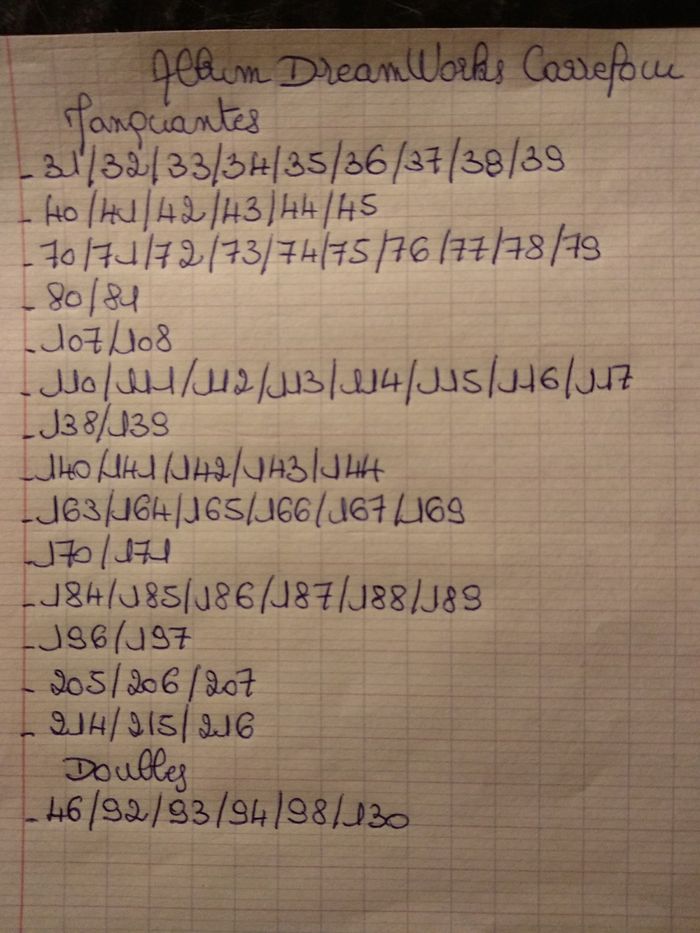 Album DreamWorks Carrefour
Manquantes
- 31/32/33/34/35/36/37/38/39
- 40/41/42/43/44/45
- 70/71/72/73/74/75/76/77/78/79
- 80/81
- 107/108
- 110/111/112/113/114/115/116/117
- 138/139
- 140/141/142/143/144
- 163/164/165/166/167/169
- 170/171
- 184/185/186/187/188/189
- 196/197
- 205/206/207
- 214/215/216
Doubles
- 46/92/93/94/98/130